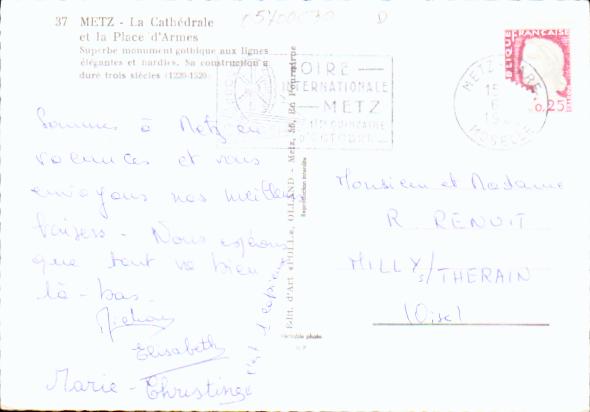 05700030 D
37 METZ - La Cathédrale
et la Place d'Armes
Superbe monument gothique aux lignes
élégantes et hardies. Sa construction a
duré trois siècles (1220-1520)
FOIRE
INTERNATIONALE
METZ
1re QUINZAINE
D'OCTOBRE
METZ-GARE
15
6
19
MOSELLE
FRANÇAISE
0,25
Sommes à Metz en
vacances et vous
envoyons nos meilleurs
baisers - Nous espérons
que tout va bien
là-bas.
Elisabeth
Marie-Christine
Edit. d'Art OLLAND - Metz, 56, En Fournirue
Reproduction interdite
Véritable photo
Monsieur et Madame
R RENUIT
MILLY s/THERAIN
(Oise)